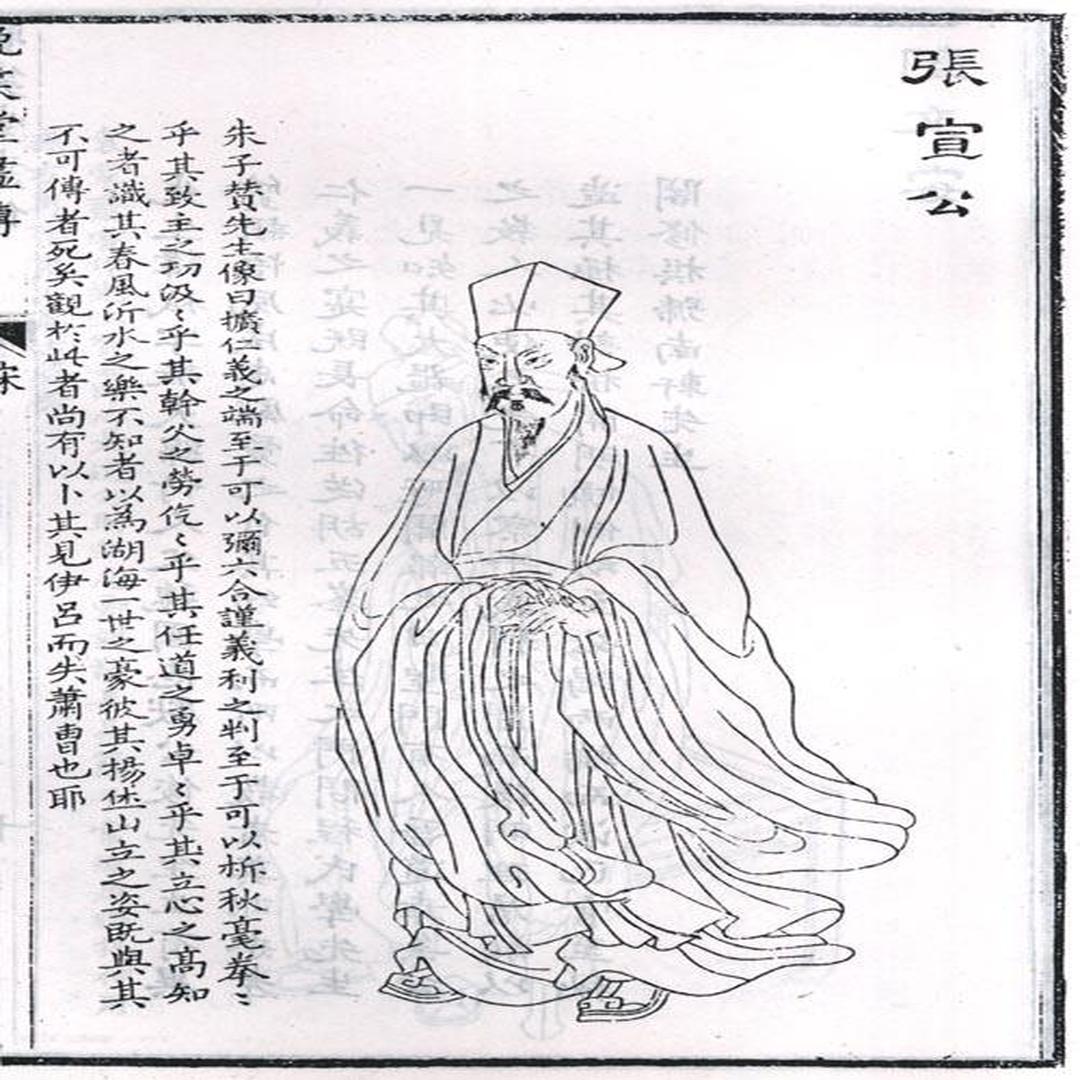 張宣公
朱子贊先生像曰擴仁義之端至于可以彌六合謹義利之判至于可以析秋毫拳〻
乎其致主之切汲〻乎其幹父之勞仡〻乎其任道之勇卓〻乎其立心之高知
之者識其春風沂水之樂不知者以為湖海一世之豪彼其揚休山立之姿旣與其
不可傳者死矣觀於此者尚有以卜其見伊呂而失蕭曹也耶
晚笑堂畫傳
宋